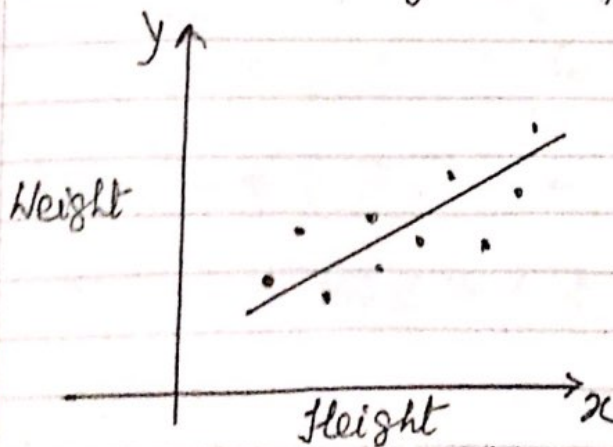 y
Weight
Height
x